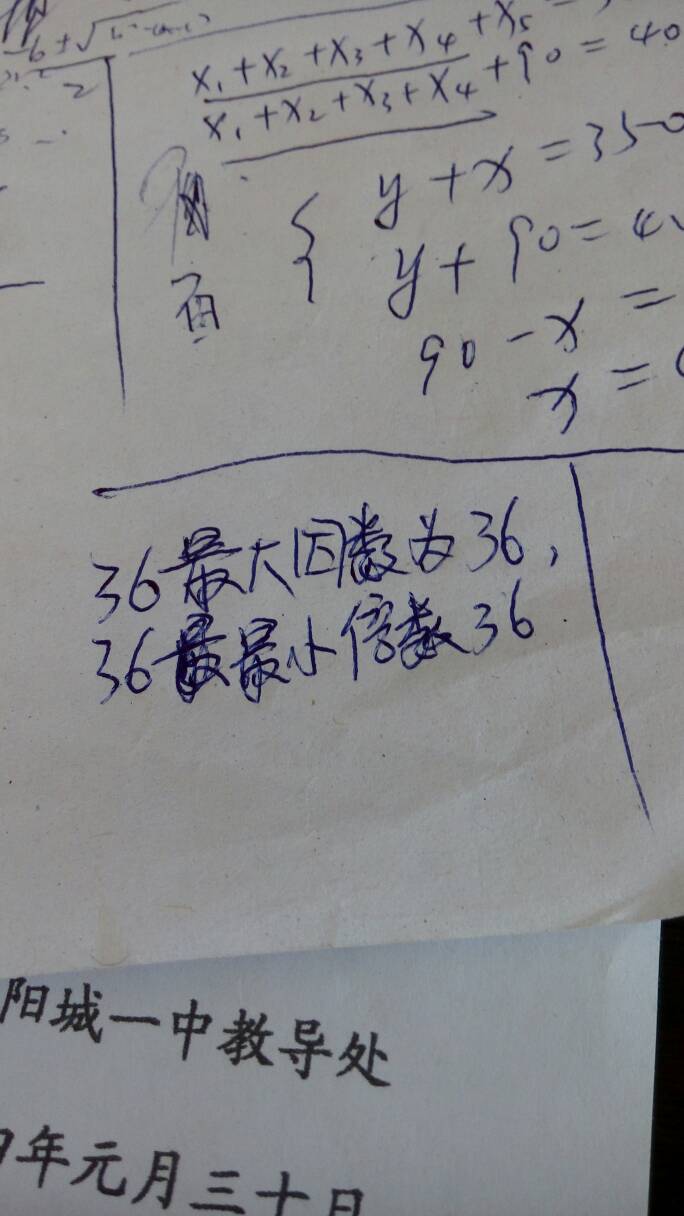 x₁+x₂+x₃+x₄+x₅
x₁+x₂+x₃+x₄+90=40
y+x=350
y+90=4
90-x=
x=
36最大因数为36,
36最最小倍数36
阳城一中教导处
年元月三十日